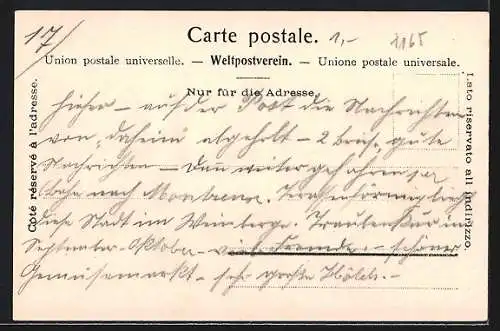 17/
Carte postale.
1,-
2165
Union postale universelle. — Weltpostverein. — Unione postale universale.
Nur für die Adresse.
Côté réservé à l'adresse.
Lato riservato all indirizzo.
hieher — auf der Post die Nachrichten
von "daheim" abgeholt — 2 Briefe, gute
Nachrichten — Dann weiter gefahren per
Bahn nach Montreux. Terassenförmig liegt
diese Stadt im Weinberge. Traubenkur im
September-Oktober — viele Fremde — schöner
Gemüsemarkt — sehr große